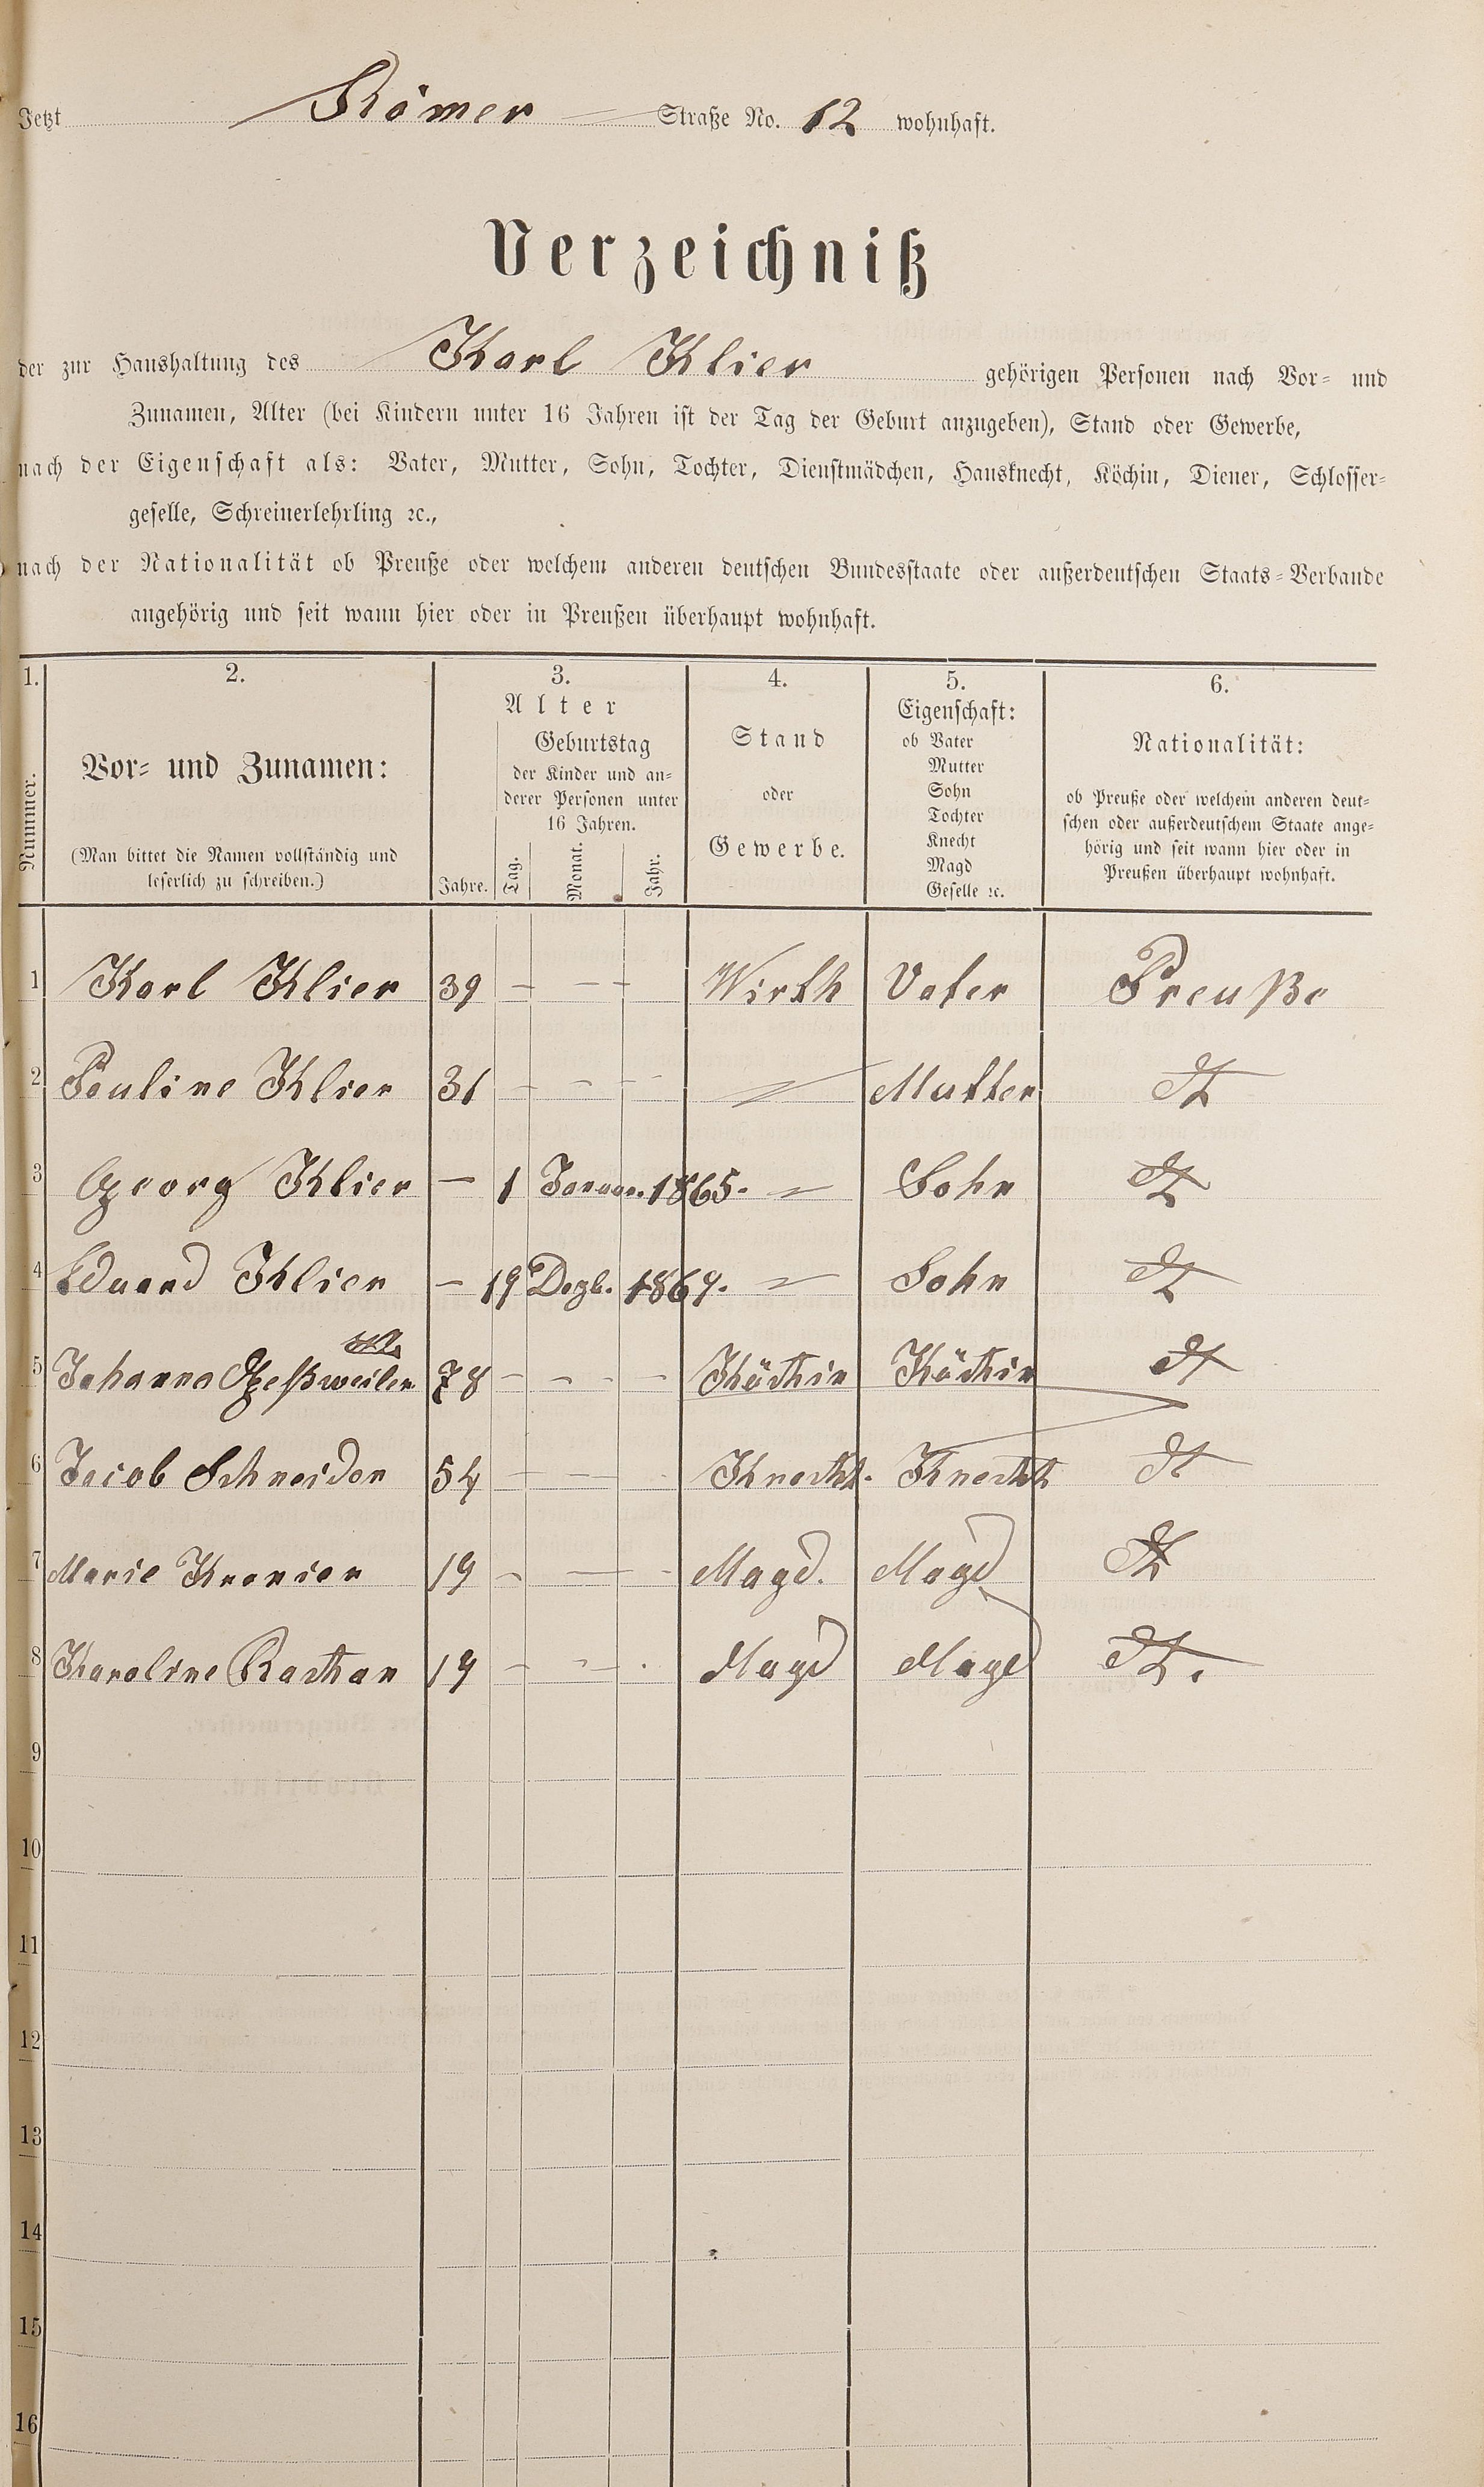 Jetzt Römer Straße No. 12 wohnhaft.
Verzeichniß
der zur Haushaltung des Karl Klier gehörigen Personen nach Vor= und
Zunamen, Alter (bei Kindern unter 16 Jahren ist der Tag der Geburt anzugeben), Stand oder Gewerbe,
nach der Eigenschaft als: Vater, Mutter, Sohn, Tochter, Dienstmädchen, Hausknecht, Köchin, Diener, Schlosser=
geselle, Schreinerlehrling ꝛc.,
nach der Nationalität ob Preuße oder welchem anderen deutschen Bundesstaate oder außerdeutschen Staats=Verbande
angehörig und seit wann hier oder in Preußen überhaupt wohnhaft.
1.
Nummer.
2.
Vor= und Zunamen:
(Man bittet die Namen vollständig und
leserlich zu schreiben.)
3.
Alter
Jahre.
Geburtstag
der Kinder und an=
derer Personen unter
16 Jahren.
Tag. Monat. Jahr.
4.
Stand
oder
Gewerbe.
5.
Eigenschaft:
ob Vater
Mutter
Sohn
Tochter
Knecht
Magd
Geselle ꝛc.
6.
Nationalität:
ob Preuße oder welchem anderen deut=
schen oder außerdeutschem Staate ange=
hörig und seit wann hier oder in
Preußen überhaupt wohnhaft.
1 Karl Klier 39 — — — Wirth Vater Preuße
2 Pauline Klier 31 — — — — Mutter dt
3 Georg Klier — 1 Januar. 1865. — Sohn dt
4 Eduard Klier — 19 Dezb. 1869. — Sohn dt
5 Johanna 78 — — — Köchin Köchin dt
6 Jacob Schneider 54 — — Knecht. Knecht dt
7 Marie 19 — — Magd. Magd dt
8 Karoline 19 — — Magd Magd dt.
9
10
11
12
13
14
15
16